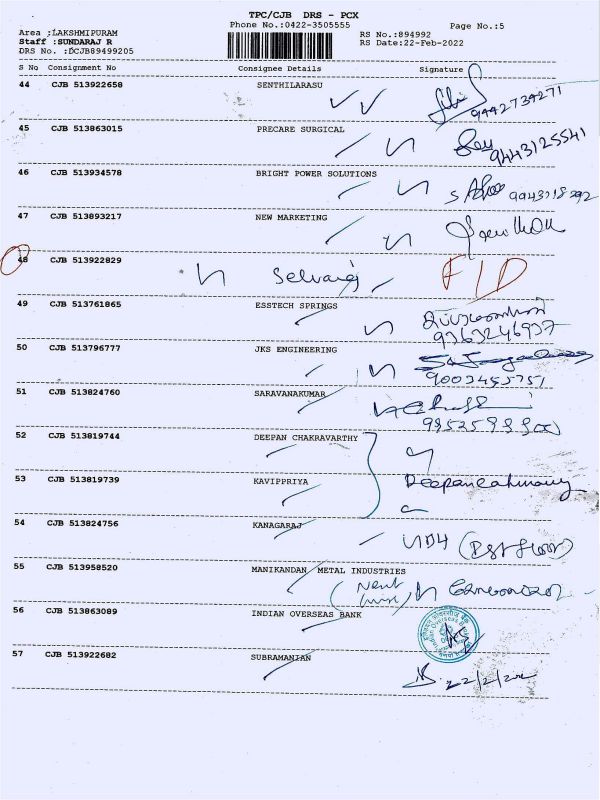 TPC/CJB DRS - PCX
Phone No.:0422-3505555
Page No.:5
Area :LAKSHMIPURAM
RS No.:894992
Staff :SUNDARAJ R
RS Date:22-Feb-2022
DRS No. :DCJB89499205
S No Consignment No Consignee Details Signature
44 CJB 513922658 SENTHILARASU
9442734271
45 CJB 513863015 PRECARE SURGICAL
9443125541
46 CJB 513934578 BRIGHT POWER SOLUTIONS
47 CJB 513893217 NEW MARKETING
48 CJB 513922829 Selvaraj F/D
49 CJB 513761865 ESSTECH SPRINGS
9363246937
50 CJB 513796777 JKS ENGINEERING
9003455751
51 CJB 513824760 SARAVANAKUMAR
52 CJB 513819744 DEEPAN CHAKRAVARTHY
53 CJB 513819739 KAVIPPRIYA
54 CJB 513824756 KANAGARAJ
55 CJB 513958520 MANIKANDAN METAL INDUSTRIES
56 CJB 513863089 INDIAN OVERSEAS BANK
57 CJB 513922682 SUBRAMANIAN